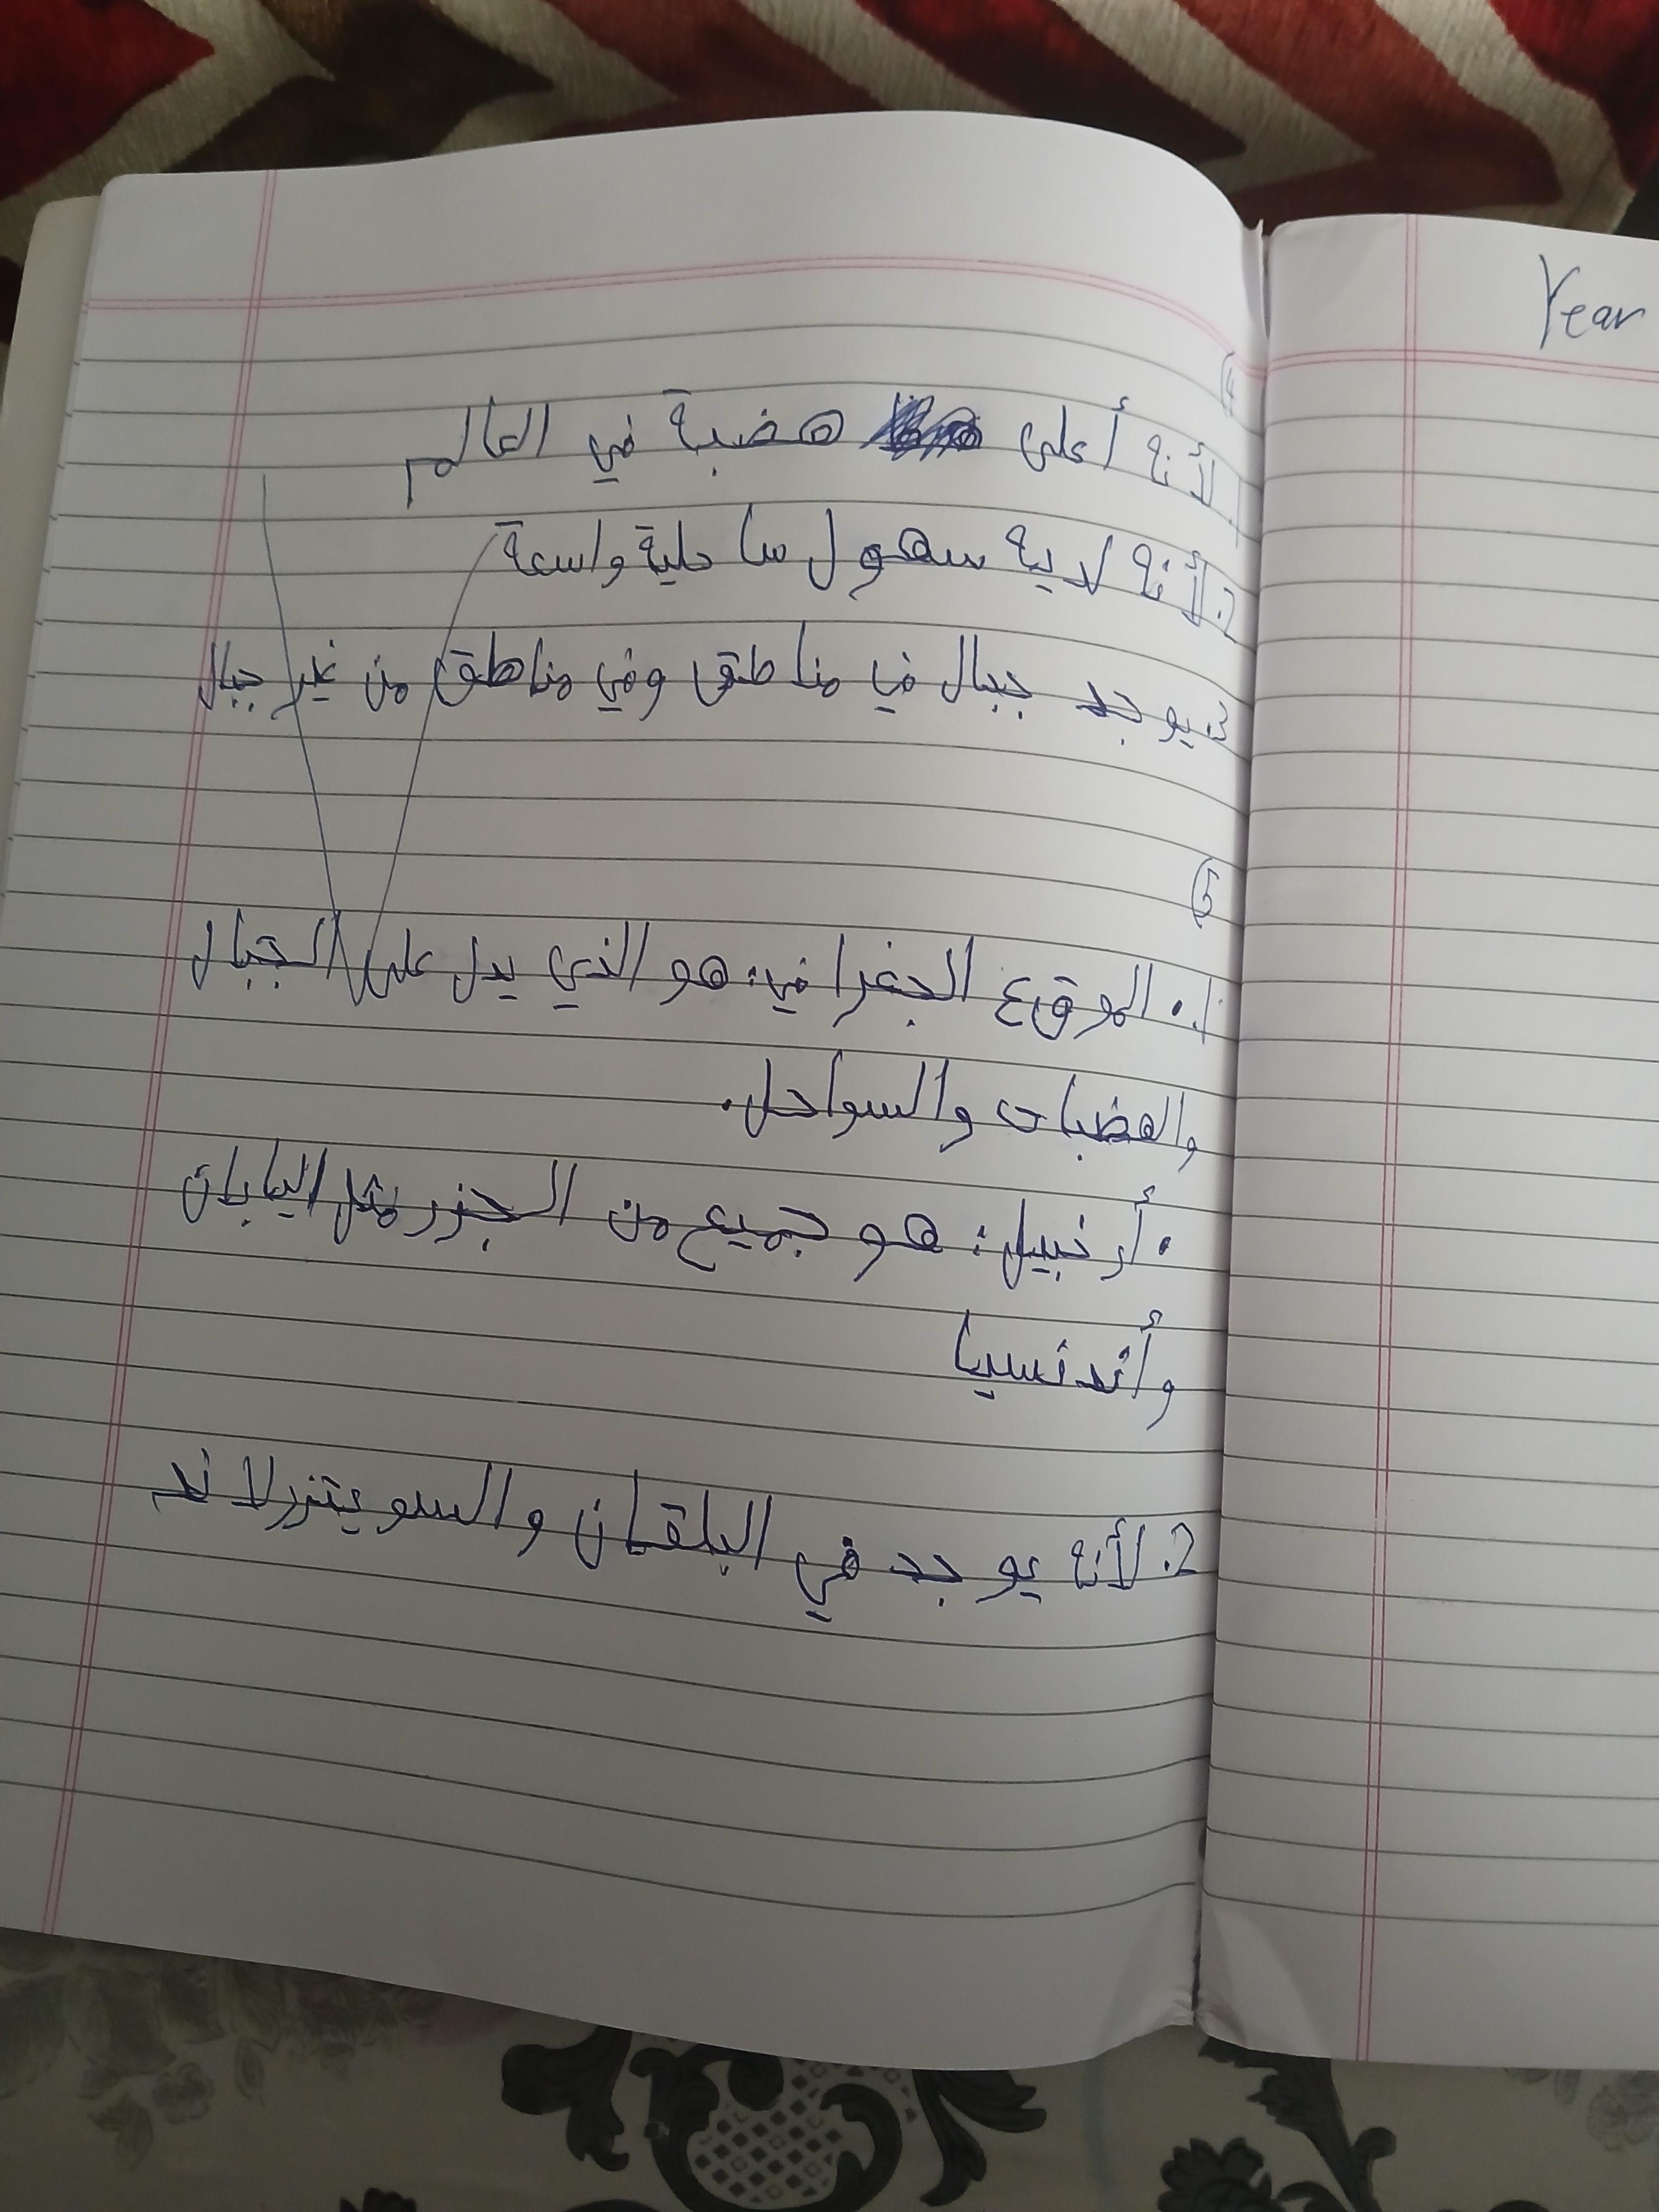 Year
4
1. لأنه أعلى هضبة في العالم
2. لأنة لدية سهول ساحلية واسعة
3. يوجد جبال في مناطق وفي مناطق من غير جبال
5
1. • الموقع الجغرافي: هو الذي يدل على الجبال
والهضبات والسواحل.
• أرخبيل: هو جميع من الجزر مثل اليابان
وأندنسيا
2. لأنه يوجد في البلقان والسويتزرلاند